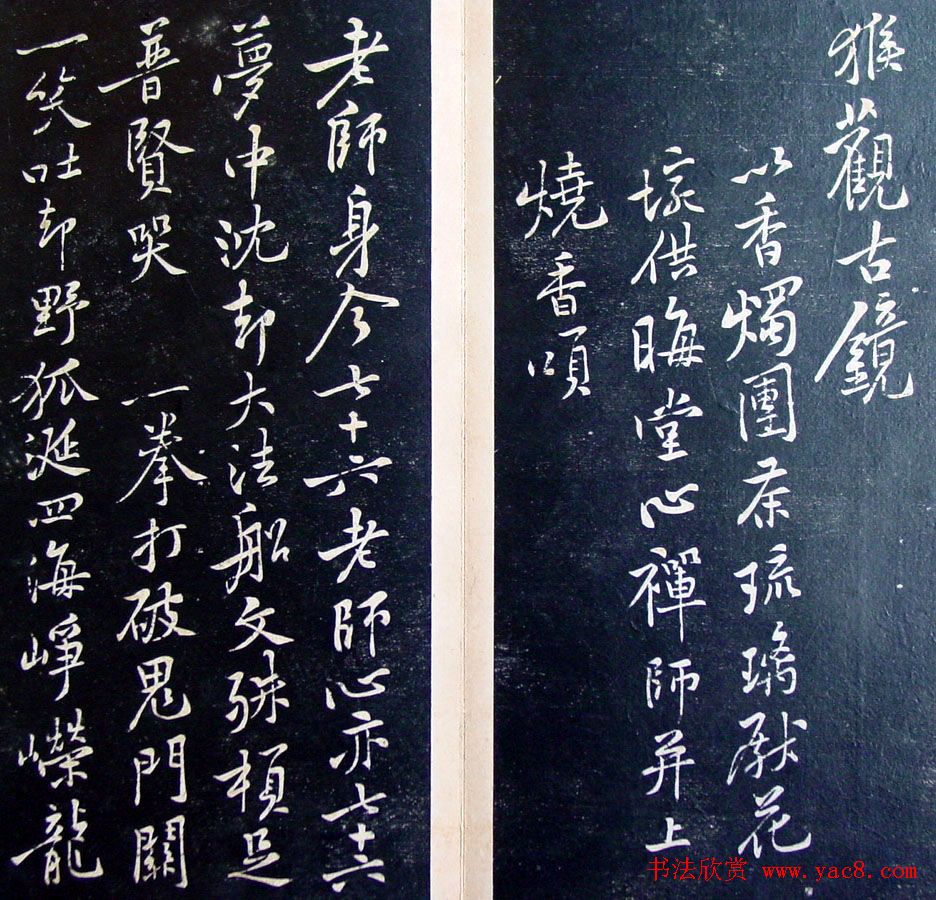 猴觀古鏡
以香燭團茶琉璃獻花
壕供晦堂心禪師并上
燒香頌
老師身今七十六老師心亦七十六
夢中沈却大法船文殊頓足
普賢哭 一拳打破鬼門關
一笑吐却野狐涎四海崢嶸龍
书法欣赏 www.yac8.com